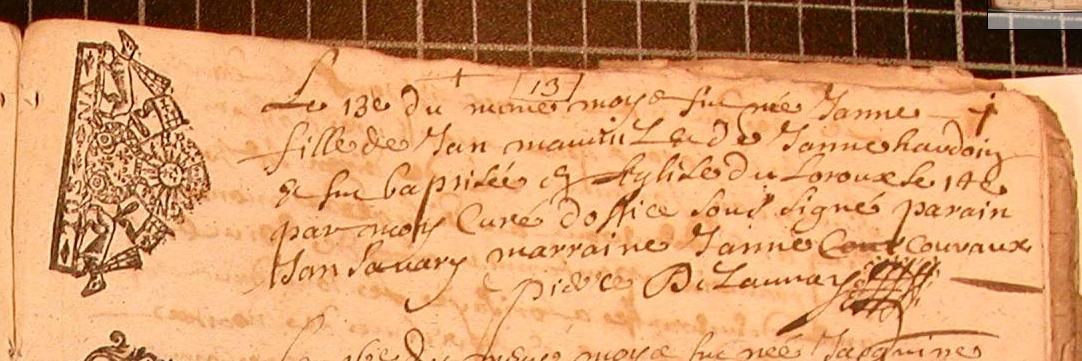 13
Le 13e du mème moys fut née Janne
fille de Jan mauvillé & de Janne haudoin
& fut baptisée en léglise du Loroux le 14e
par moy Curé doffice sous signé parain
Jan Savary marraine Janne Couvraux
pierre DeLaunay
du mème moys fut née Jacquine